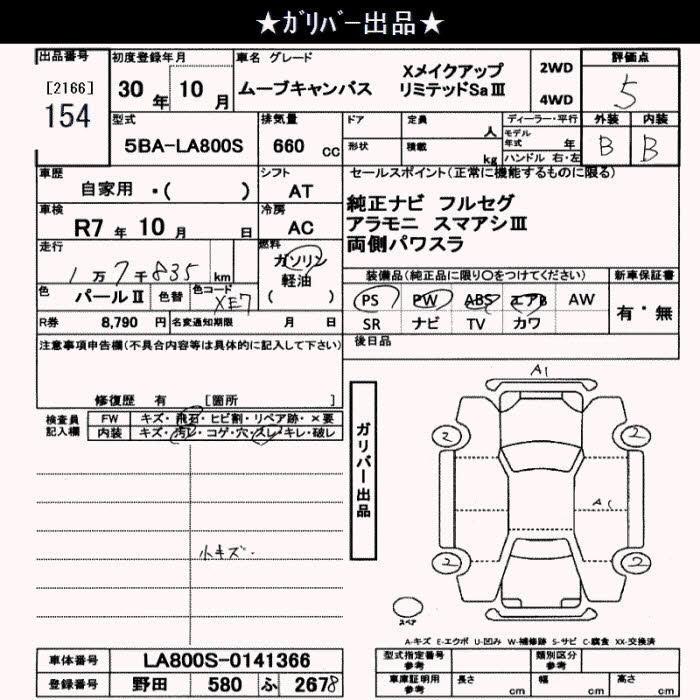 ★ｶﾞﾘﾊﾞｰ出品★
出品番号
[2166]
154
初度登録年月
30年 10月
車名 グレード
Xメイクアップ
ムーブキャンバス リミテッドSaⅢ
2WD
4WD
評価点
5
型式
5BA-LA800S
排気量
660 cc
ドア
定員
人
形状
積載
kg
ディーラー・平行
モデル年式 年
ハンドル 右・左
外装
B
内装
B
車歴
自家用 ・( )
シフト
AT
車検
R7年 10月 日
冷房
AC
セールスポイント(正常に機能するものに限る)
純正ナビ フルセグ
アラモニ スマアシⅢ
両側パワスラ
走行
1万7千835 km
燃料
ガソリン
軽油
( )
色
パールⅡ
色替
色コード
XE7
装備品(純正品に限り○をつけてください)
PS PW ABS エアB AW
SR ナビ TV カワ
新車保証書
有・無
R券 8,790 円
名変通知期限 月 日
後日品
注意事項申告欄(不具合内容等は具体的に記入して下さい)
修復歴 有 [箇所 ]
検査員記入欄
FW キズ・飛石・ヒビ割・リペア跡・×要
内装 キズ・汚レ・コゲ・穴・スレ・キレ・破レ
小キズ・
ガリバー出品
A1
2
2
A1
2
2
スペア
A-キズ E-エクボ U-凹み W-補修跡 S-サビ C-腐食 XX-交換済
車体番号 LA800S-0141366
登録番号 野田 580 ふ 2678
型式指定番号 参考
類別区分 参考
車庫証明用 参考
長さ cm
幅 cm
高さ cm